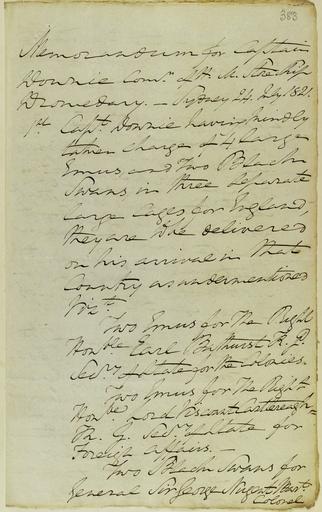 383
Memorandum for Captain
Downie Comr. of H. M. Store Ship
Dromedary. — Sydney 24. July 1821.
1st. Captn. Downie having kindly
taken charge of 4 large
Emus, and Two Black
Swans in three separate
large Cages for England,
they are to be delivered
on his arrival in that
Country as undermentioned
Vizt.
Two Emus for The Right
Honble. Earl Bathurst K. G.
Secy. of State for the Colonies.
Two Emus for The Right
Honble. Lord Viscount Castlereagh
K. G. Secy. of State for
Foreign Affairs. —
Two Black Swans for
General Sir George Nugent Bart.
Colonel